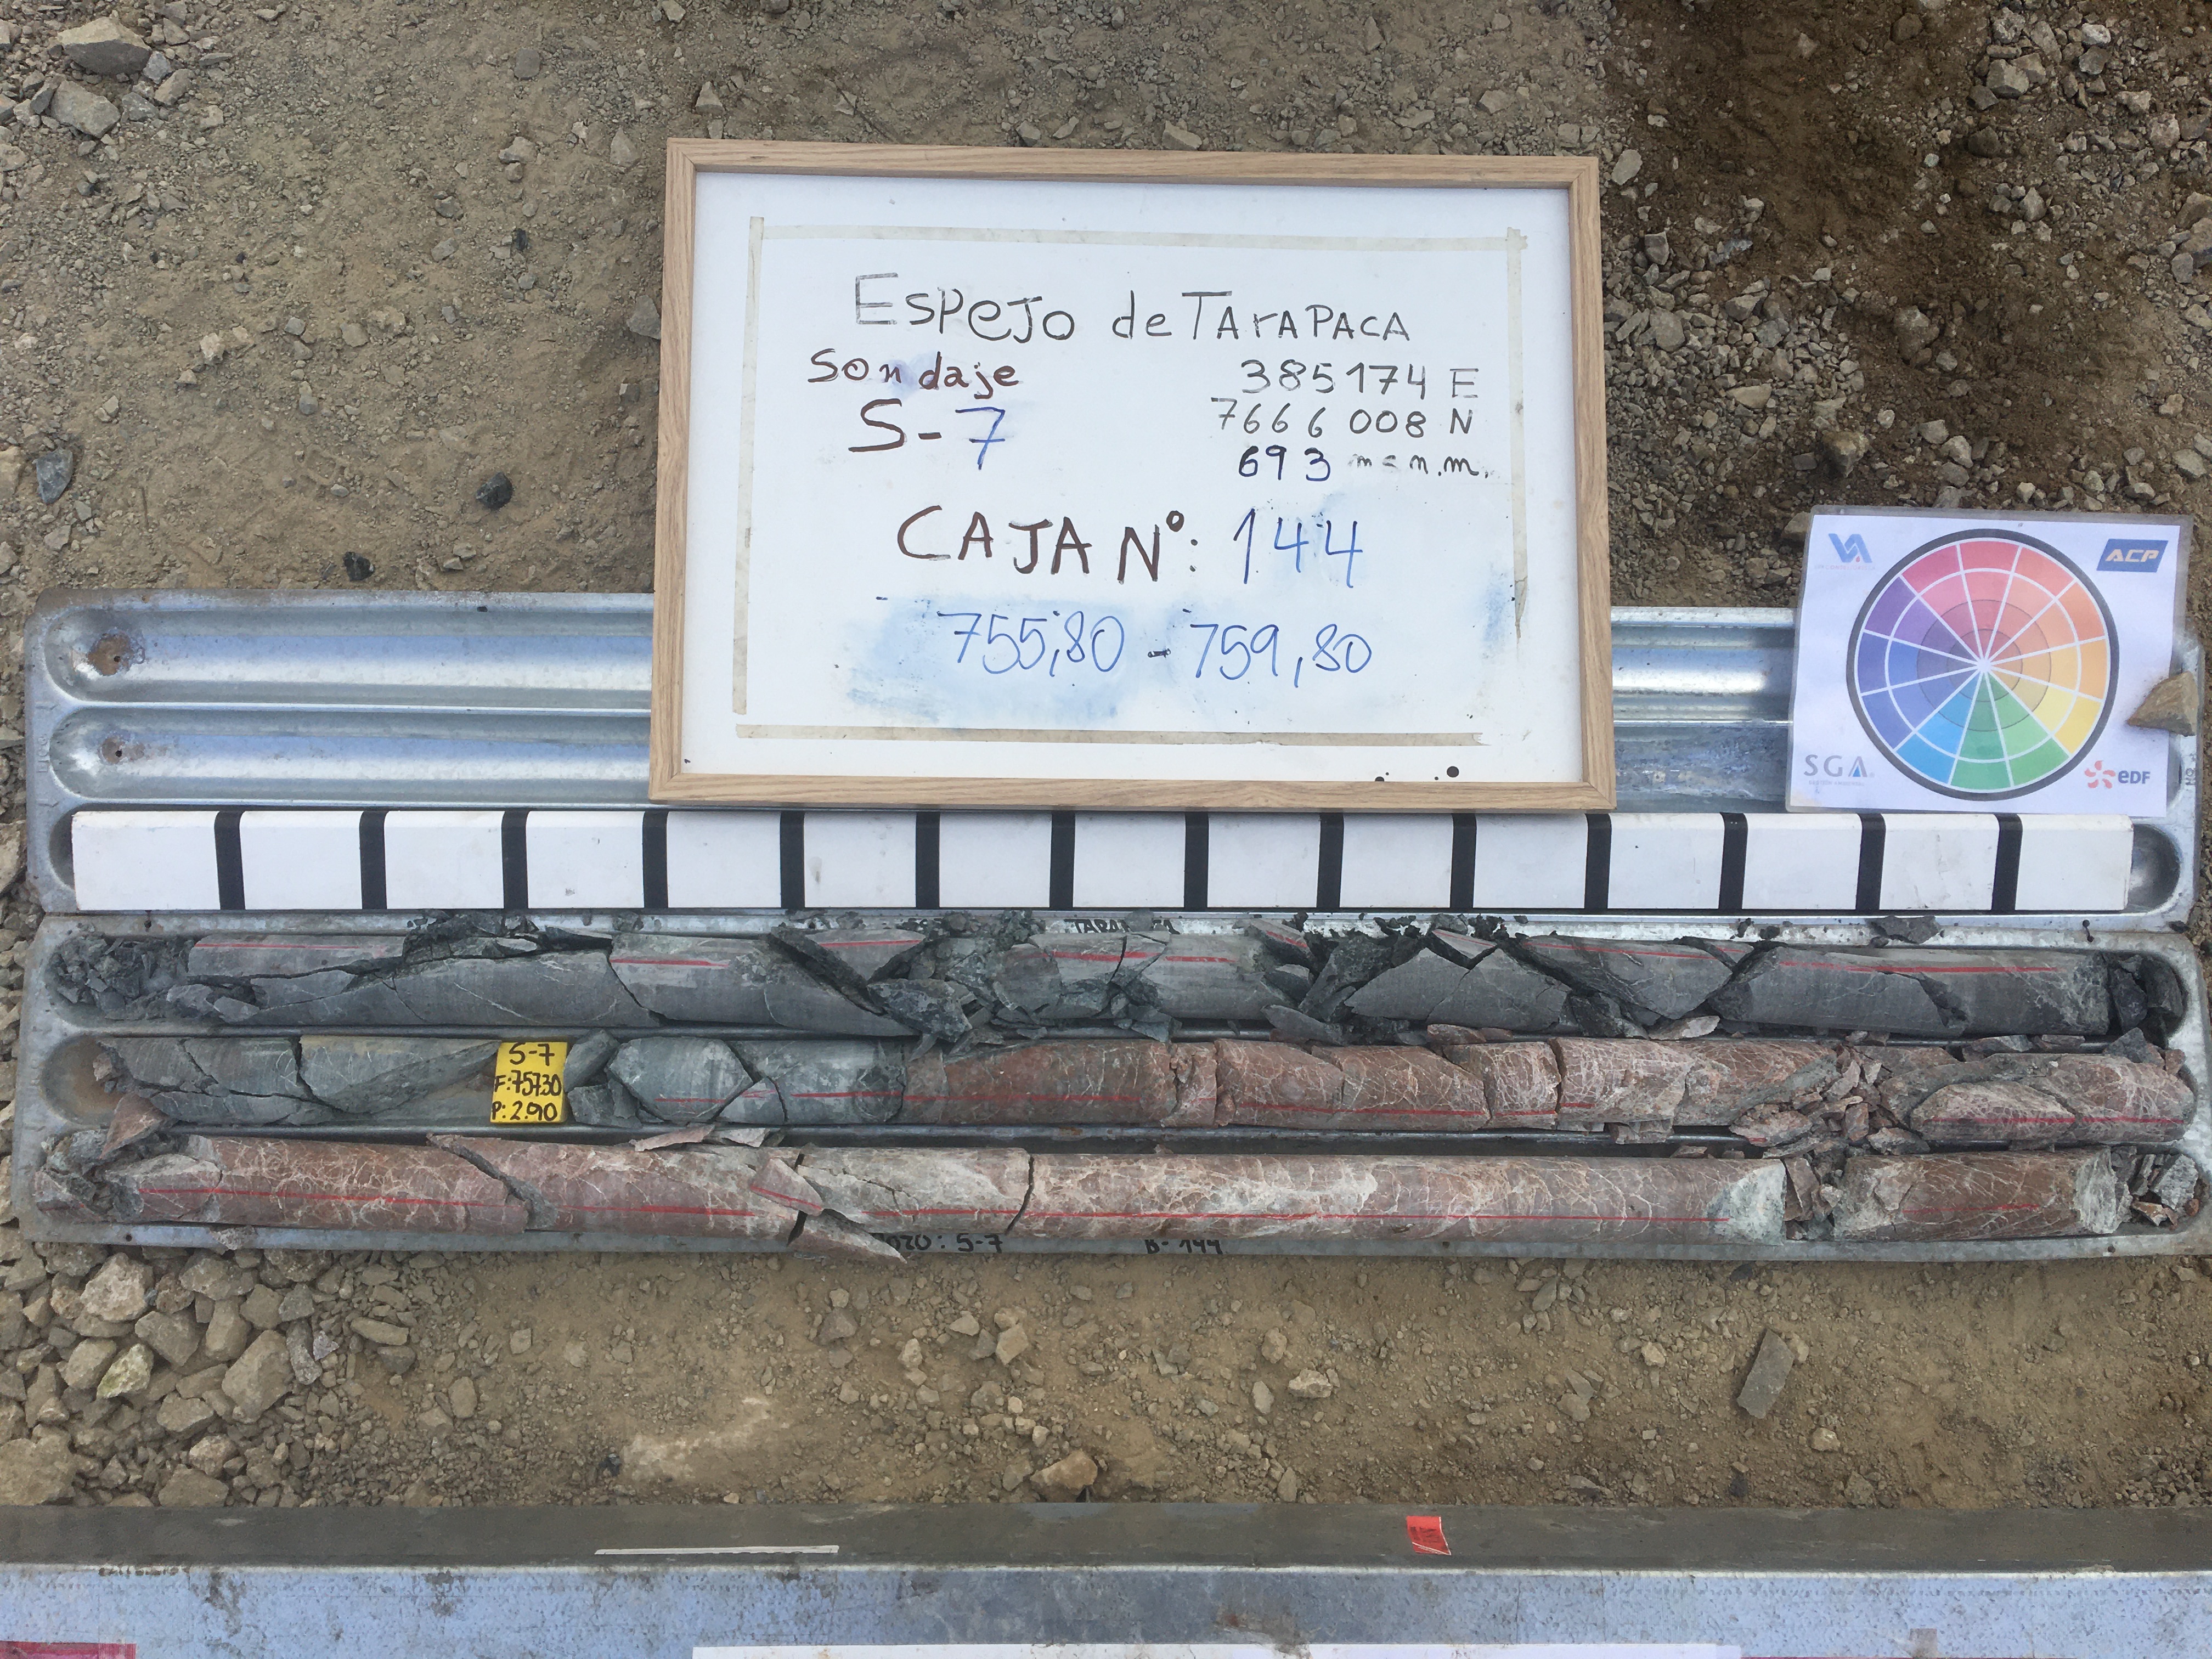 Espejo de TArAPACA
Sondaje
S-7
385174 E
7666 008 N
693 m s n.m.
CAJA N°: 144
755,80 - 759,80
ACP
SGA
edF
S-7
F:757.30
P:2.90
POZO: S-7
B-144